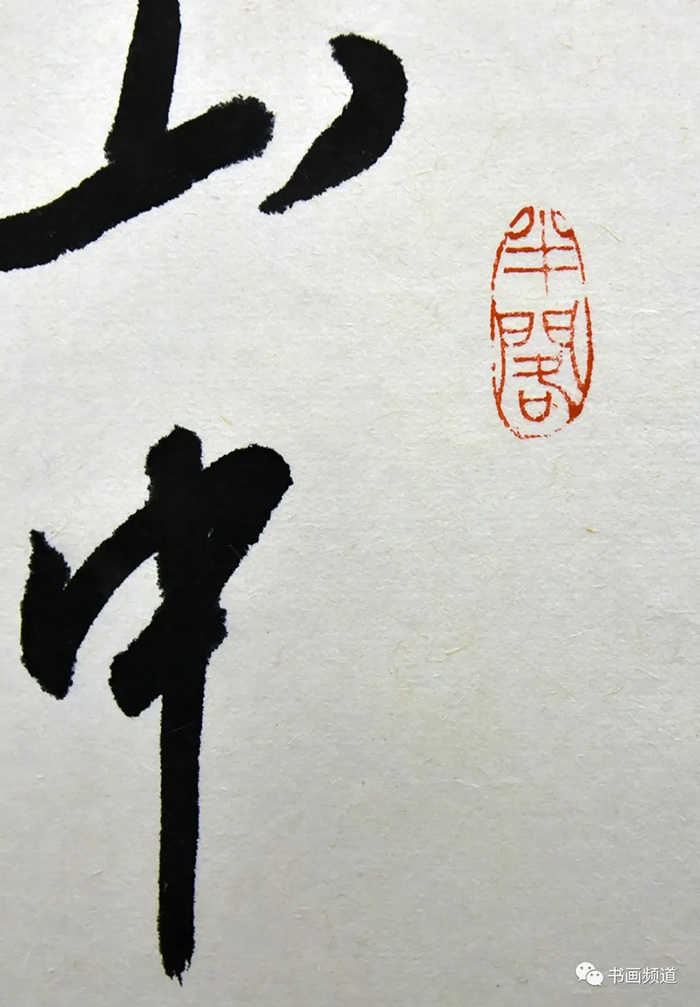 山中
半閣
书画频道